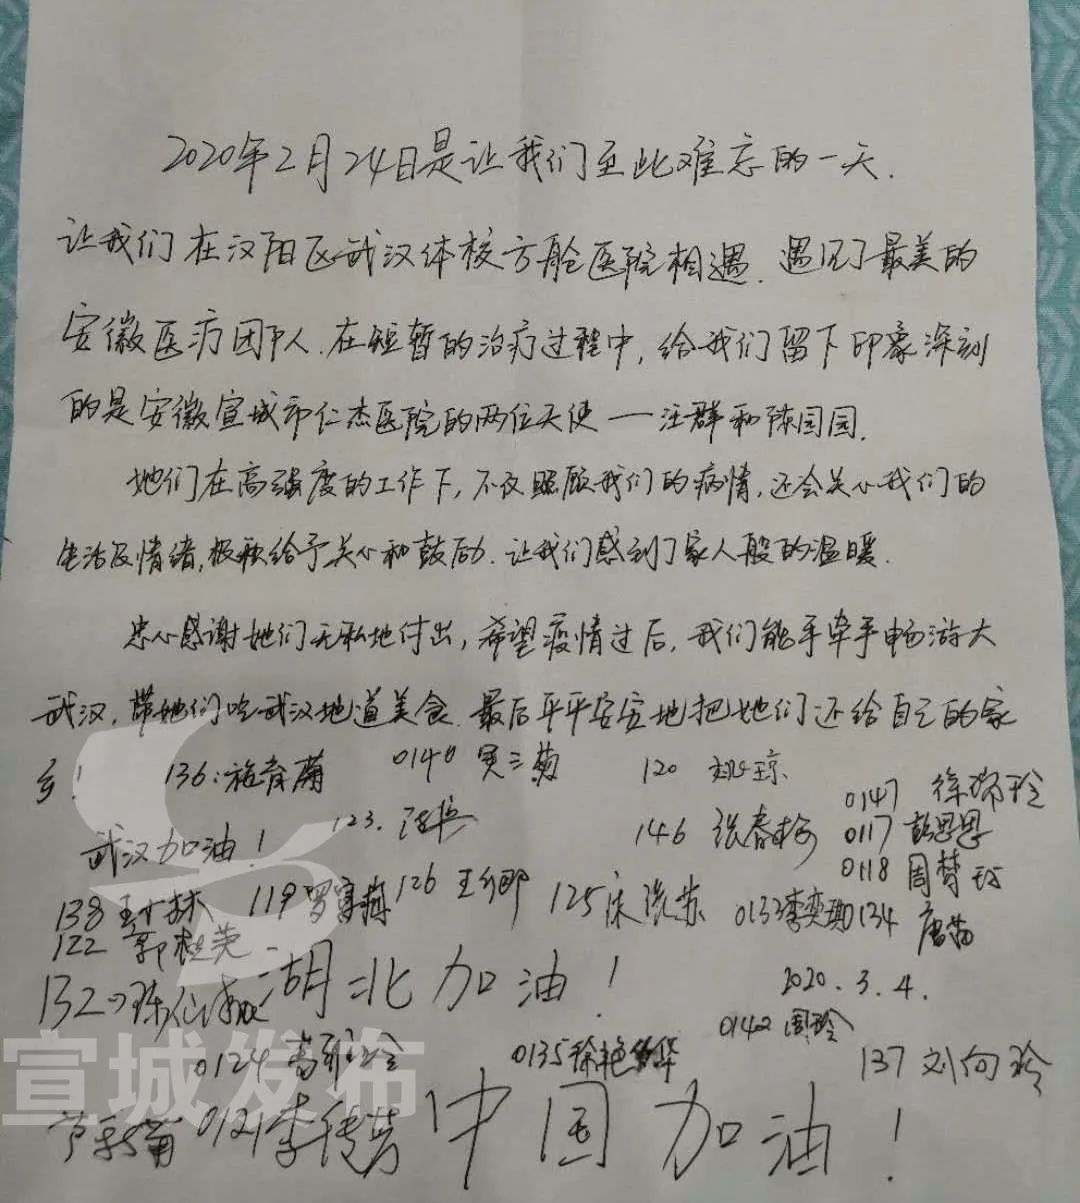 2020年2月24日是让我们至此难忘的一天.
让我们在汉阳区武汉体校方舱医院相遇.遇见了最美的
安徽医疗团队人.在短暂的治疗过程中,给我们留下印象深刻
的是安徽宣城市仁杰医院的两位天使——汪群和陈园园.
她们在高强度的工作下,不仅照顾我们的病情,还会关心我们的
生活及情绪,极歌给予关心和鼓励.让我们感到了家人般的温暖.
忠心感谢她们无私地付出,希望疫情过后,我们能手牵手畅游大
武汉,带她们吃武汉地道美食.最后平平安安地把她们还给自己的家
乡!
136:施青菊 0140 吴三菊 120 姚琼
0147 徐瑞玲
123. 汪兵 146 张春梅 0117 彭思思
武汉加油!
0118 周梦
138 119 罗 126 王 125 宋 0133 李奕 134 唐苗
122 郭桂英
132 陈 湖北加油!
2020.3.4.
0142 周玲
0124 0135 徐艳华
137 刘向玲
0121 李传芳 中国加油!
宣城发布